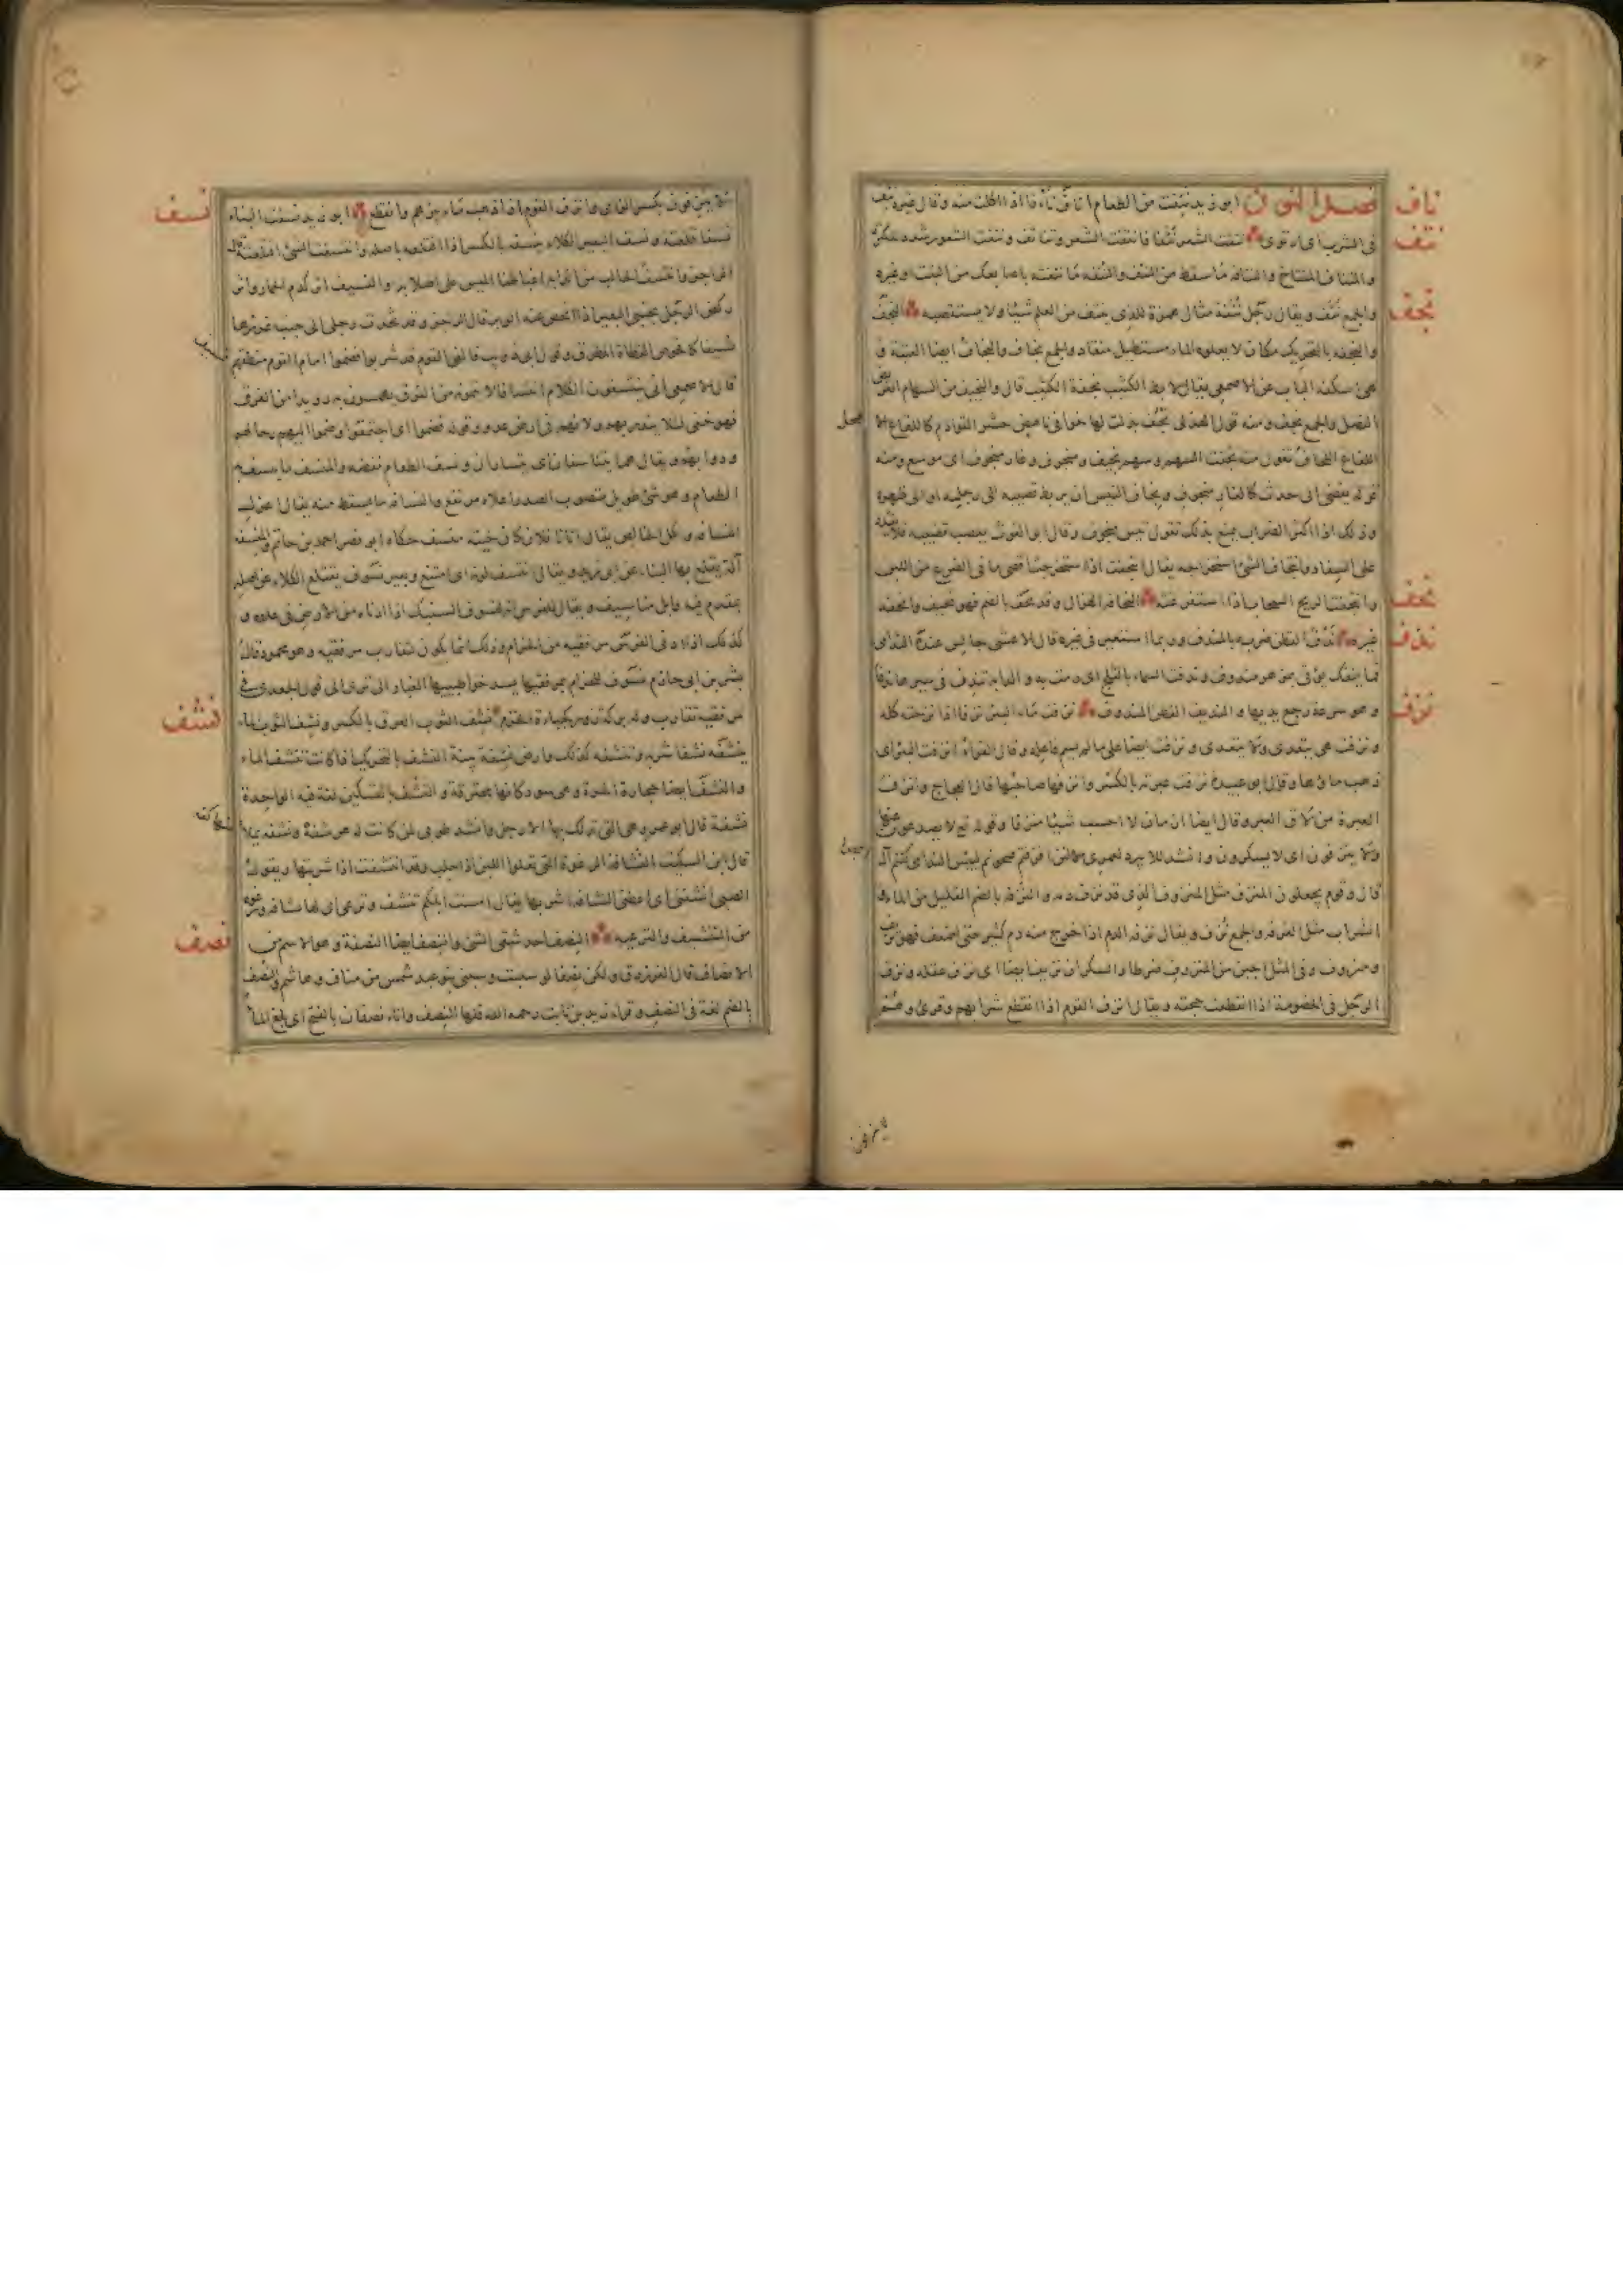 ناف
فصل النون ابو زيد نئفت من الطعام اناف نأفا اذا اكلت منه وقال غيره نئف
نتف
فى الشرب اى ارتوى نتفت الشعر نتفا فانتتف الشعر وتناتف ونتفت الشعور شدد للكثرة
والنتاف والنتافة ما سقط من النتف والنتفة ما نتفته باصابعك من النبت او غيره
نجف
والجمع نتف ويقال رجل نتفة مثال همزة للذى ينتف من العلم شيئا ولا يستقصيه النجف
والنجفة بالتحريك مكان لا يعلوه الماء مستطيل منقاد والجمع نجاف والنجاف ايضا العتبة و
هى اسكفة الباب عن الاصمعى يقال لابط الكثيب نجفة الكثيب قال والنجيف من السهام العريض
النصل والجمع نجف ومنه قول الهذلى نجف بذلت لها خوافى ناهض حشر القوادم كاللفاع الا
اللفاع اللحاف تقول منه نجفت السهم وسهم نجيف ومنجوف وغار منجوف اى موسع ومنه
قوله يفضى الى جدث كالغار منجوف ونجاف التيس ان يربط قضيبه الى رجليه او الى ظهره
وذلك اذا اكثر الضراب يمنع بذلك تقول تيس منجوف وقال ابو الغوث يعصب قضيبه فلا يقدر
على السفاد وانتجاف الشئ استخراجه يقال انتجفت اذا استخرجت اقصى ما فى الضرع من اللبن
نحف
وانتجفت الريح السحاب اذا استفرغته النحافة الهزال وقد نحف بالضم فهو نحيف وانحفه
ندف
غيره ندف القطن ضربه بالمندف وربما استعير فى غيره قال الاعشى جالس عنده الندامى
فما ينفك يؤتى بمزهر مندوف وندفت السماء بالثلج اى رمت به والدابة تندف فى سيرها ندفا
نزف
وهو سرعة رجع يديها والنديف القطن المندوف نزفت ماء البئر نزفا اذا نزحته كله
ونزفت هى يتعدى ولا يتعدى ونزفت ايضا على ما لم يسم فاعله وقال الفراء انزفت البئر اى
ذهب ماؤها وقال ابو عبيدة نزفت عبرته بالكسر وانزفها صاحبها قال العجاج وانزف
العبرة من لاقى العبر وقال ايضا ازمان لا احسب شيئا منزفا وقوله تع لا يصدعون عنها
ولا ينزفون اى لا يسكرون وانشد للابيرد لعمرى لئن انزفتم او صحوتم لبئس الندامى كنتم آل
قال وقوم يجعلون المنزف مثل المنزوف الذى قد نزف دمه والنزفة بالضم القليل من الماء و
الشراب مثل الغرفة والجمع نزف ويقال نزفه الدم اذا خرج منه دم كثير حتى يضعف فهو نزيف
ومنزوف وفى المثل اجبن من المنزوف ضرطا والسكران نزيف ايضا اى نزف عقله ونزف
الرجل فى الخصومة اذا انقطعت حجته ويقال انزف القوم اذا انقطع شرابهم وقرئ وهم
لا ينزفون
نسف
لا ينزفون بكسر الزاى وانزف القوم اذا ذهب ماء بئرهم وانقطع ابو زيد نسفت البناء
نسفا قلعته ونسف البعير الكلاء ينسفه بالكسر اذا اقتلعه باصله وانتسفت الشئ اقتلعته قال
الراجز وانتسف الجالب من اندابه اغباطنا الميس على اصلابه والنسيف اثر كدم الحمار واثر
ركض الرجل بجنبى البعير اذا انحص عنه الوبر قال الممزق وقد تخذت رجلى الى جنب غرزها
نسيفا كافحوص القطاة المطرق وقول ابى ذؤيب فالفى القوم قد شربوا فضموا امام القوم منطقهم
نسيف
قال الاصمعى اى ينتسفون الكلام انتسافا لا يتمونه من الفرق يهمسون به رويدا من الفرق
فهو خفى لئلا ينذر بهم ولانهم فى ارض عدو وقوله فضموا اى اجتمعوا وضموا اليهم رحالهم
ودوابهم ويقال هما يتناسفان اى يتساران ونسف الطعام نفضه والمنسف ما ينسف به
الطعام وهو شئ طويل منصوب الصدر اعلاه مرتفع والنسافة ما يسقط منه يقال اعزل
النسافة وكل الخالص ويقال اتانا فلان كان لحيته منسف حكاه ابو نصر احمد بن حاتم والمنسفة
آلة يقلع بها البناء عن ابى زيد ويقال انتسف لونه اى امتقع وبعير نسوف يقتلع الكلاء من اصله
بمقدم فيه وابل مناسيف ويقال للفرس انه لنسوف السنبك اذا ادناه من الارض فى عدوه و
كذلك اذا ادنى الفرس مرفقيه من الحزام وذلك انما يكون لتقارب مرفقيه وهو محمود قال
بشر بن ابى حازم نسوف للحزام بمرفقيها يسد خواء طبييها الغبار الا ترى الى قول الجعدى فى
نشف
مرفقيه تقارب وله بركة زور كجباءة الخزم نشف الثوب العرق بالكسر ونشف الحوض الماء
ينشفه نشفا شربه وتنشفه كذلك وارض نشفة بينة النشف بالتحريك اذا كانت تنشف الماء
والنشف ايضا حجارة الحرة وهى سود كانها محترقة والنشف بالتسكين لغة فيه الواحدة
نشفة قال ابو عمرو هى التى تدلك بها الارجل وانشد طوبى لمن كانت له هرشفة ونشفة يملأ
قال ابن السكيت النشافة الرغوة التى تعلوا اللبن اذا حلب وقد انتشفت اذا شربتها ويقول
الصبى انشفنى اى اعطنى النشافة اشربها يقال امست ابلكم تنشف وترغى اى لها نشافة ورغوة
نصف
من التنشيف والترغية النصف احد شقى الشئ والنصف ايضا النصفة وهو الاسم من
الانصاف قال الفرزدق ولكن نصفا لو سببت وسبنى بنو عبد شمس من مناف وهاشم والنصف
بالضم لغة فى النصف وقراء زيد بن ثابت رحمه الله فلها النصف واناء نصفان بالفتح اى بلغ الماء